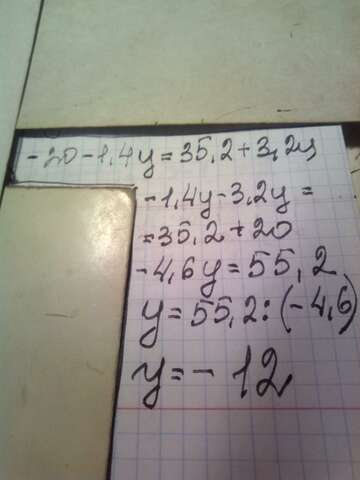 -20-1,4y=35,2+3,2y
-1,4y-3,2y=
=35,2+20
-4,6y=55,2
y=55,2:(-4,6)
y=-12